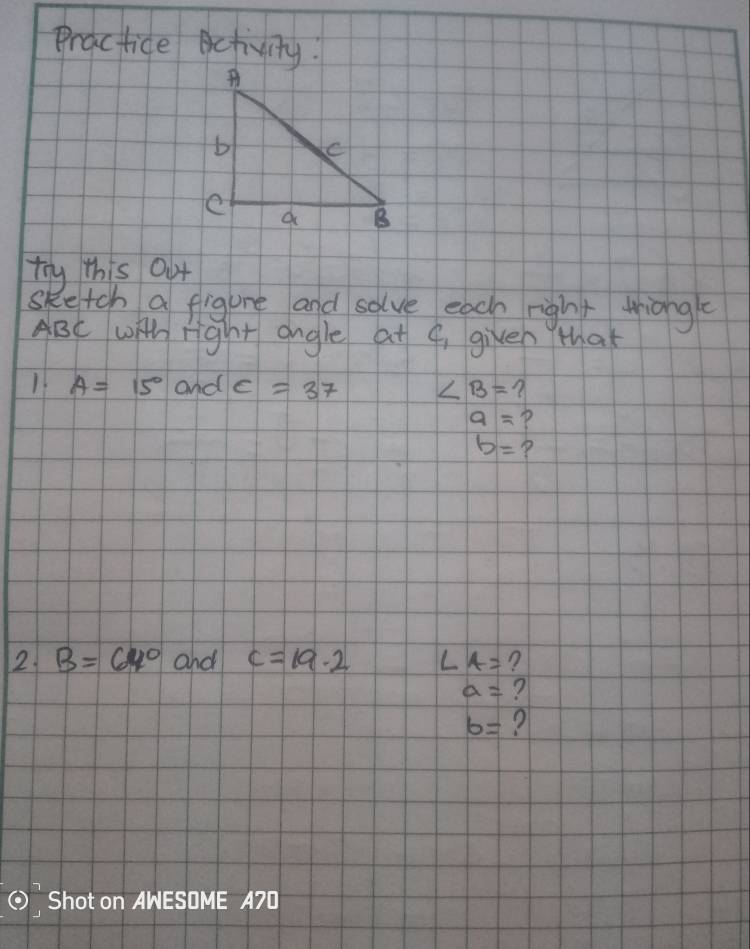 Practice Activity:
A
b
c
C
a
B
Try this Out
Sketch a figure and solve each right triangle
ABC with right angle at C, given that
1. A = 15° and c = 37
∠B = ?
a = ?
b = ?
2. B = 64° and c = 19.2
∠A = ?
a = ?
b = ?
Shot on AWESOME A70